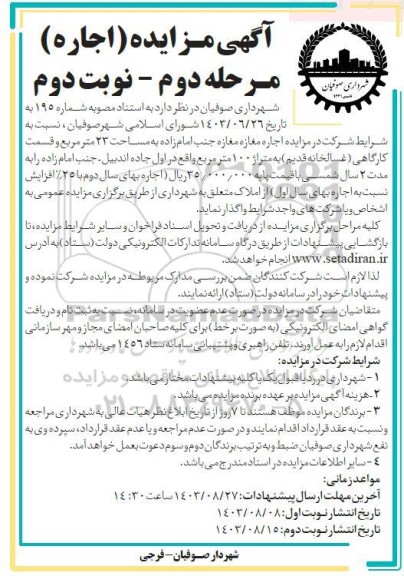 آگهی مـزایده (اجاره)
مـرحله دوم - نوبت دوم
شهرداری صوفیان
شهـرداری صوفیان در نظر دارد به استناد مصوبه شمـاره ۱۹۵ به
تاریخ ۱۴۰۳/۰۶/۲۶ شورای اسـلامی شهرصوفیان ، نسبت به
شرایط شرکت در مزایده اجاره مغازه مغازه جنب امام‌زاده به مساحت ۲۳ متر مربع و قسمت
کارگاهی (غسالخانه قدیم) به متراژ ۱۰۰ متر مربع واقع در اول جاده اندبیل-جنب امام زاده را به
مدت ۲ سال شمسـی با قیمت پایه ۳۵٫۰۰۰٫۰۰۰ ریال (اجاره بهای سال دوم با ۲۵٪ افزایش
نسبت به اجاره بهای سال اول) از املاک متعلق به شهرداری از طریق برگزاری مزایده عمومی به
اشخاص و یا شرکت های واجد شرایط واگذار نماید.
کلیه مراحل برگزاری مزایـده از دریافت و تحویل اسـناد فراخوان و سایر شـرایط مزایده، تا
بازگشایی پیشنهادات از طریق درگاه سامانه تدارکات الکترونیکی دولت (ستاد) به آدرس
www.setadiran.ir انجام خواهد شد.
لذا لازم است شرکت کنندگان ضمن بررسی مدارک مربوطه در مزایده شرکت نموده و
پیشنهادات خود را در سامانه دولت (ستاد) ارائه نمایند.
متقاضیان شرکت در مزایده در صورت عدم عضویت در سامانه، نسبت به ثبت نام و دریافت
گواهی امضای الکترونیکی (به صورت برخط) برای کلیه صاحبان امضای مجاز و مهر سازمانی
اقدام لازم را به عمل آورند. تلفن راهبری و پشتیبانی سامانه ستاد ۱۴۵۶ می‌باشد.
شرایط شرکت در مزایده:
۱- شهرداری در رد یا قبول یک یا کلیه پیشنهادات مختار می باشد.
۲- هزینه آگهی مزایده بر عهده برنده مزایده می باشد.
۳- برندگان مزایده موظف هستند تا ۷ روز از تاریخ ابلاغ نظر هیات عالی به شهرداری مراجعه
و نسبت به عقد قرارداد اقدام نمایند و در صورت عدم مراجعه و یا عدم عقد قرارداد، سپرده وی به
نفع شهرداری صوفیان ضبط و به ترتیب برندگان دوم و سوم دعوت بعمل خواهد آمد.
۴- سایر اطلاعات مزایده در اسناد مندرج می باشد.
مواعد زمانی:
آخرین مهلت ارسال پیشنهادات: ۱۴۰۳/۰۸/۲۷ ساعت ۱۴:۳۰
تاریخ انتشار نوبت اول: ۱۴۰۳/۰۸/۰۸
تاریخ انتشار نوبت دوم: ۱۴۰۳/۰۸/۱۵
شهردار صوفیان- فرجی